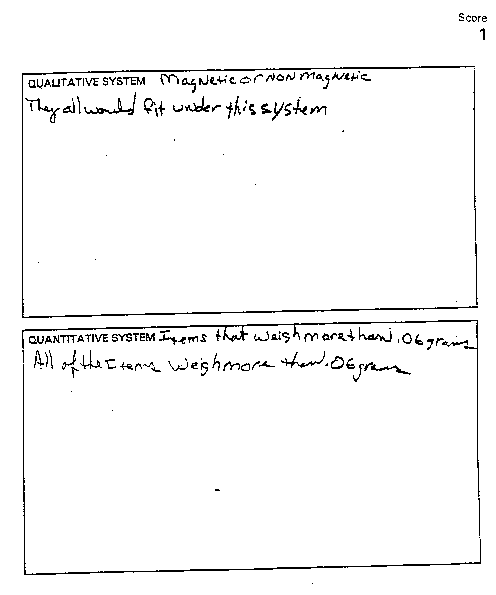 Score
1
QUALITATIVE SYSTEM Magnetic or NON Magnetic
They all would fit under this system
QUANTITATIVE SYSTEM Items that weigh more than .06 grams
All of the Items weigh more than .06 grams